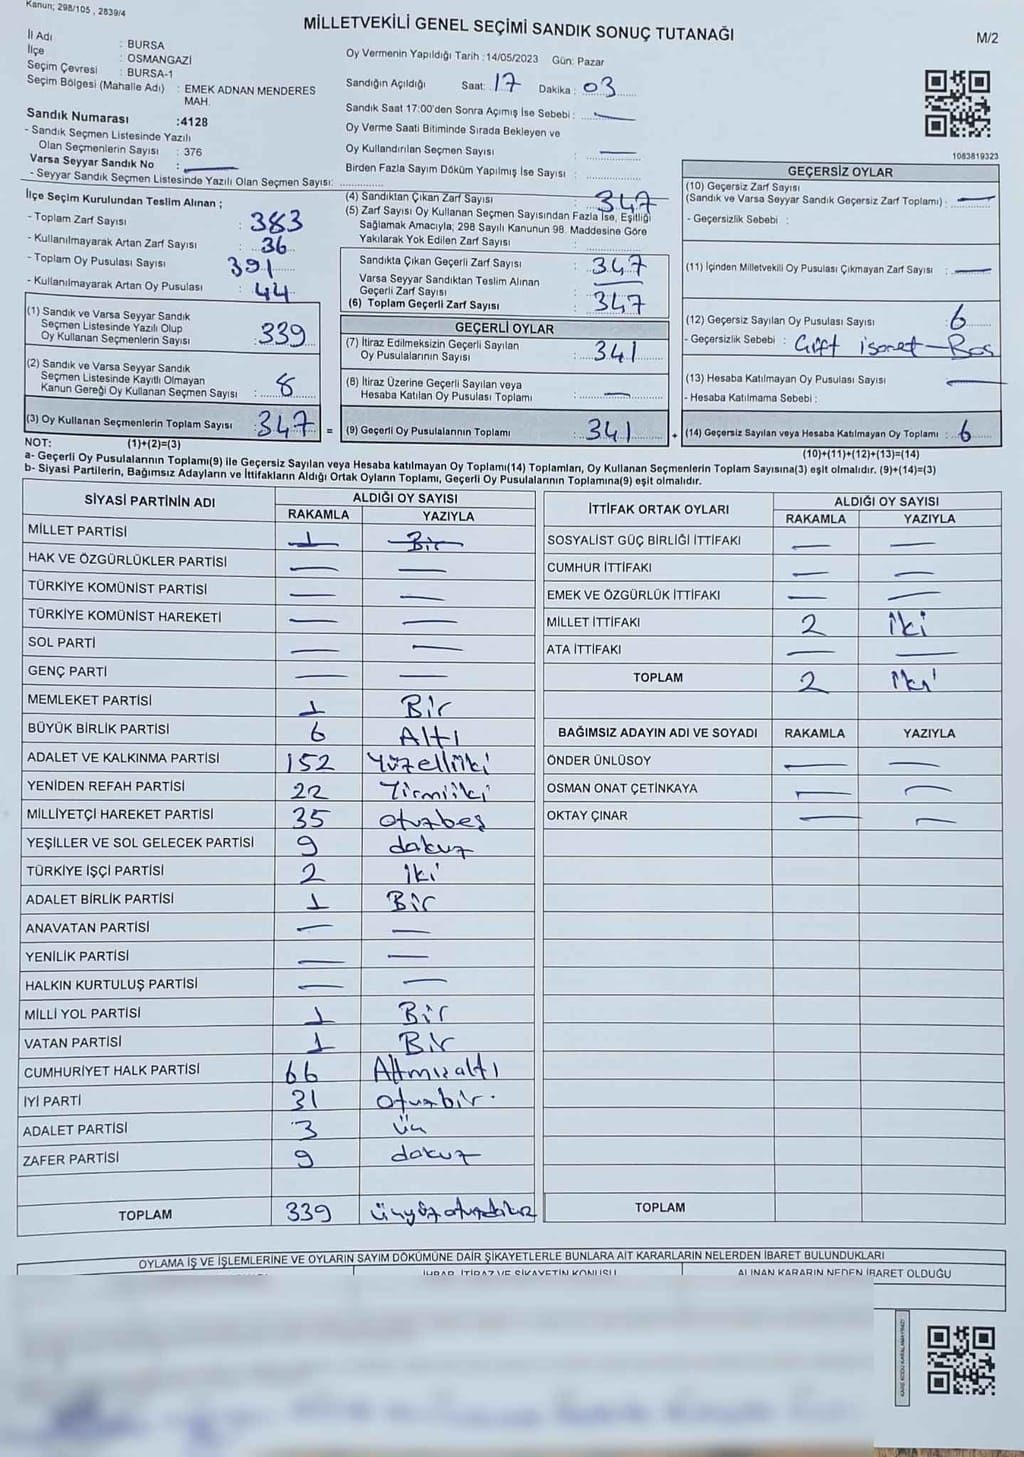 Kanun; 298/105 , 2839/4
MİLLETVEKİLİ GENEL SEÇİMİ SANDIK SONUÇ TUTANAĞI
M/2
İl Adı : BURSA
İlçe : OSMANGAZİ
Seçim Çevresi : BURSA-1
Seçim Bölgesi (Mahalle Adı) : EMEK ADNAN MENDERES MAH.
Sandık Numarası :4128
- Sandık Seçmen Listesinde Yazılı
Olan Seçmenlerin Sayısı : 376
Varsa Seyyar Sandık No : —
- Seyyar Sandık Seçmen Listesinde Yazılı Olan Seçmen Sayısı:
Oy Vermenin Yapıldığı Tarih : 14/05/2023 Gün: Pazar
Sandığın Açıldığı Saat: 17 Dakika : 03
Sandık Saat 17:00'den Sonra Açımış İse Sebebi : —
Oy Verme Saati Bitiminde Sırada Bekleyen ve
Oy Kullandırılan Seçmen Sayısı : —
Birden Fazla Sayım Döküm Yapılmış İse Sayısı :
1083819323
İlçe Seçim Kurulundan Teslim Alınan ;
- Toplam Zarf Sayısı : 383
- Kullanılmayarak Artan Zarf Sayısı : 36
- Toplam Oy Pusulası Sayısı : 391
- Kullanılmayarak Artan Oy Pusulası : 44
(1) Sandık ve Varsa Seyyar Sandık
Seçmen Listesinde Yazılı Olup
Oy Kullanan Seçmenlerin Sayısı :339
(2) Sandık ve Varsa Seyyar Sandık
Seçmen Listesinde Kayıtlı Olmayan
Kanun Gereği Oy Kullanan Seçmen Sayısı : 8
(3) Oy Kullanan Seçmenlerin Toplam Sayısı : 347 =
(4) Sandıktan Çıkan Zarf Sayısı : 347
(5) Zarf Sayısı Oy Kullanan Seçmen Sayısından Fazla İse, Eşitliği
Sağlamak Amacıyla; 298 Sayılı Kanunun 98. Maddesine Göre
Yakılarak Yok Edilen Zarf Sayısı :
Sandıkta Çıkan Geçerli Zarf Sayısı : 347
Varsa Seyyar Sandıktan Teslim Alınan
Geçerli Zarf Sayısı : —
(6) Toplam Geçerli Zarf Sayısı : 347
GEÇERLİ OYLAR
(7) İtiraz Edilmeksizin Geçerli Sayılan
Oy Pusulalarının Sayısı : 341
(8) İtiraz Üzerine Geçerli Sayılan veya
Hesaba Katılan Oy Pusulası Toplamı : —
(9) Geçerli Oy Pusulalarının Toplamı : 341 +
GEÇERSİZ OYLAR
(10) Geçersiz Zarf Sayısı
(Sandık ve Varsa Seyyar Sandık Geçersiz Zarf Toplamı) : —
- Geçersizlik Sebebi :
(11) İçinden Milletvekili Oy Pusulası Çıkmayan Zarf Sayısı : —
(12) Geçersiz Sayılan Oy Pusulası Sayısı : 6
- Geçersizlik Sebebi : Çift işaret - Boş
(13) Hesaba Katılmayan Oy Pusulası Sayısı : —
- Hesaba Katılmama Sebebi :
(14) Geçersiz Sayılan veya Hesaba Katılmayan Oy Toplamı : 6
NOT: (1)+(2)=(3) (10)+(11)+(12)+(13)=(14)
a- Geçerli Oy Pusulalarının Toplamı(9) ile Geçersiz Sayılan veya Hesaba katılmayan Oy Toplamı(14) Toplamları, Oy Kullanan Seçmenlerin Toplam Sayısına(3) eşit olmalıdır. (9)+(14)=(3)
b- Siyasi Partilerin, Bağımsız Adayların ve İttifakların Aldığı Ortak Oyların Toplamı, Geçerli Oy Pusulalarının Toplamına(9) eşit olmalıdır.
SİYASİ PARTİNİN ADI ALDIĞI OY SAYISI
RAKAMLA YAZIYLA
MİLLET PARTİSİ 1 Bir
HAK VE ÖZGÜRLÜKLER PARTİSİ — —
TÜRKİYE KOMÜNİST PARTİSİ — —
TÜRKİYE KOMÜNİST HAREKETİ — —
SOL PARTİ — —
GENÇ PARTİ — —
MEMLEKET PARTİSİ 1 Bir
BÜYÜK BİRLİK PARTİSİ 6 Altı
ADALET VE KALKINMA PARTİSİ 152 Yüzelliiki
YENİDEN REFAH PARTİSİ 22 Yirmiiki
MİLLİYETÇİ HAREKET PARTİSİ 35 otuzbeş
YEŞİLLER VE SOL GELECEK PARTİSİ 9 dokuz
TÜRKİYE İŞÇİ PARTİSİ 2 iki
ADALET BİRLİK PARTİSİ 1 Bir
ANAVATAN PARTİSİ — —
YENİLİK PARTİSİ — —
HALKIN KURTULUŞ PARTİSİ — —
MİLLİ YOL PARTİSİ 1 Bir
VATAN PARTİSİ 1 Bir
CUMHURİYET HALK PARTİSİ 66 Altmışaltı
İYİ PARTİ 31 otuzbir.
ADALET PARTİSİ 3 üç
ZAFER PARTİSİ 9 dokuz
TOPLAM 339 üçyüzotuzdokuz
İTTİFAK ORTAK OYLARI ALDIĞI OY SAYISI
RAKAMLA YAZIYLA
SOSYALİST GÜÇ BİRLİĞİ İTTİFAKI — —
CUMHUR İTTİFAKI — —
EMEK VE ÖZGÜRLÜK İTTİFAKI — —
MİLLET İTTİFAKI 2 iki
ATA İTTİFAKI — —
TOPLAM 2 iki
BAĞIMSIZ ADAYIN ADI VE SOYADI RAKAMLA YAZIYLA
ÖNDER ÜNLÜSOY — —
OSMAN ONAT ÇETİNKAYA — —
OKTAY ÇINAR — —
TOPLAM
OYLAMA İŞ VE İŞLEMLERİNE VE OYLARIN SAYIM DÖKÜMÜNE DAİR ŞİKAYETLERLE BUNLARA AİT KARARLARIN NELERDEN İBARET BULUNDUKLARI
İHBAR, İTİRAZ VE ŞİKAYETİN KONUSU ALINAN KARARIN NEDEN İBARET OLDUĞU
KARE KODU KARALAMAYINIZ!